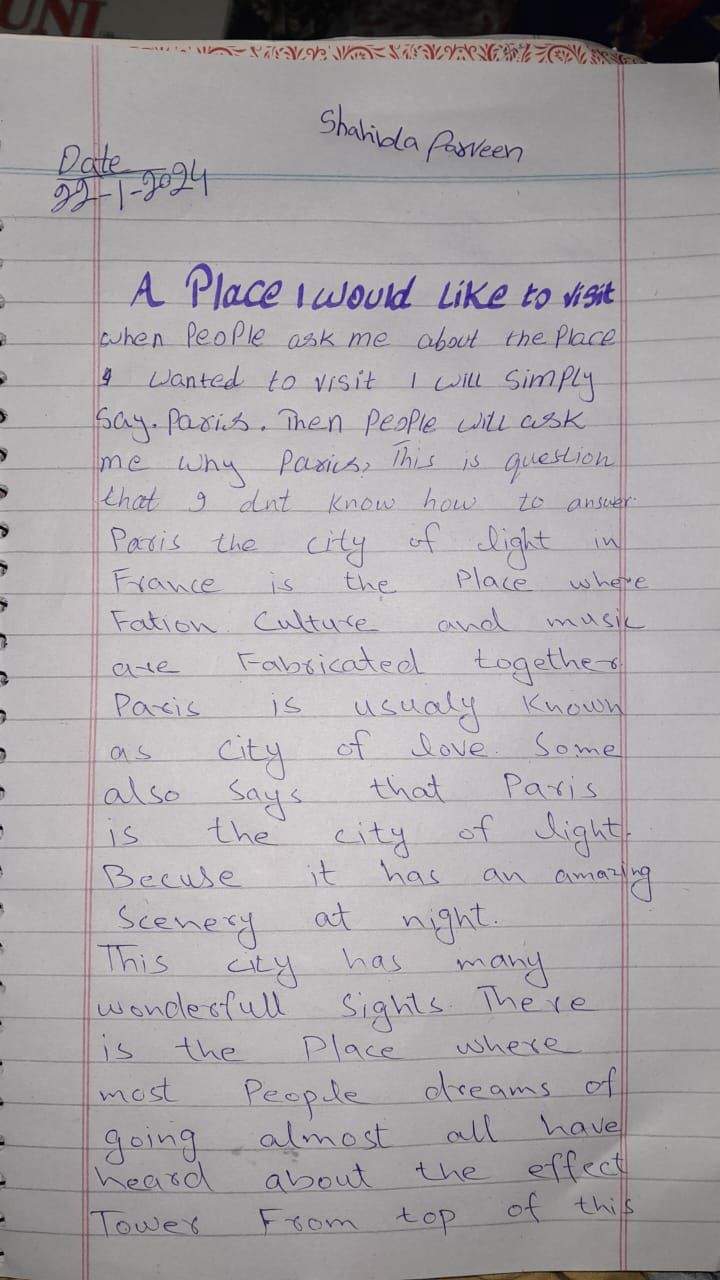 UNI
Shahida Parveen
Date
22-1-2024
A Place I would Like to visit
when People ask me about the Place
I wanted to visit I will simply
Say. Paris. Then People will ask
me why Paris, This is question
that I dnt know how to answer.
Paris the city of light in
France is the Place where
Fation Culture and music
are Fabricated together
Paris is usualy known
as city of love. Some
also says that Paris
is the city of light.
Becuse it has an amazing
Scenery at night.
This city has many
wonderfull Sights. There
is the Place where
most People dreams of
going almost all have
heard about the effect
Tower From top of this